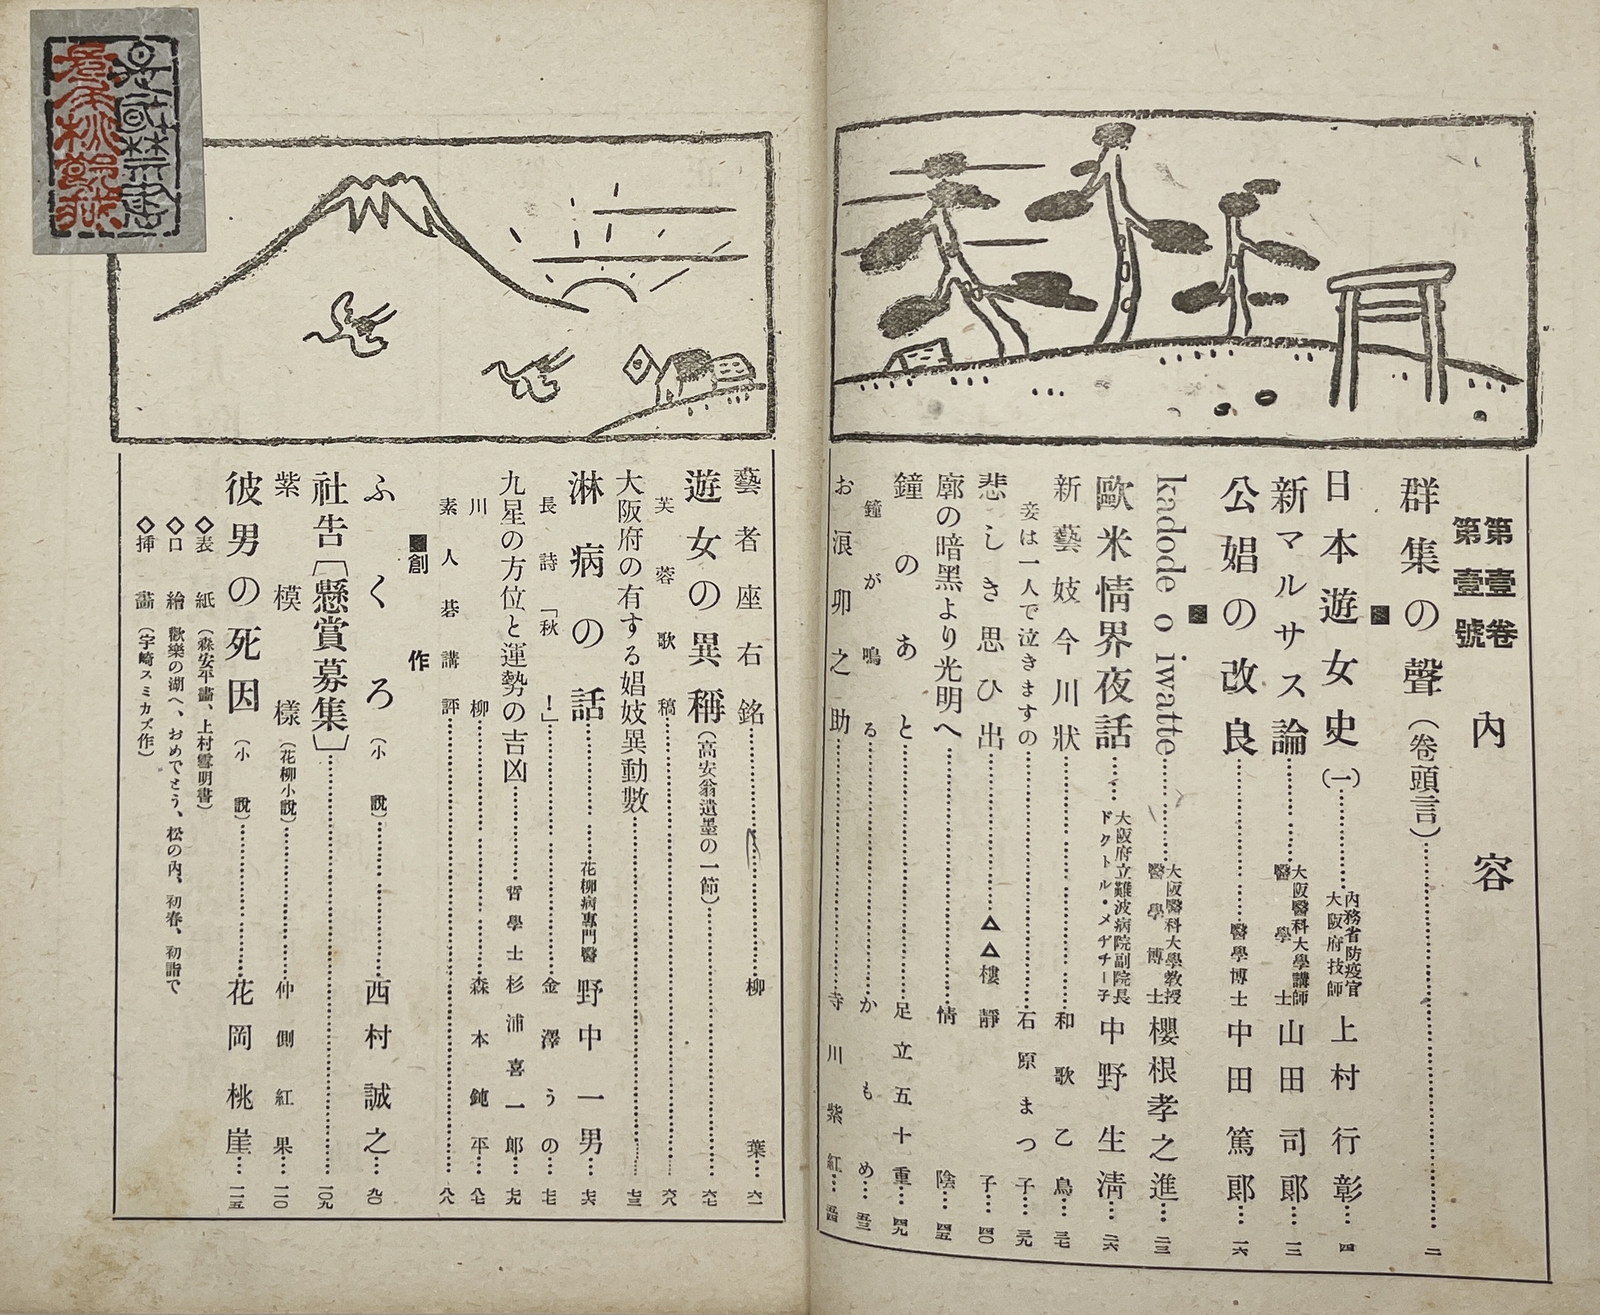 第壹卷
第壹號
內容
群集の聲（卷頭言）……二
日本遊女史（一）……內務省防疫官 大阪府技師 上村行彰……四
新マルサス論……大阪醫科大學講師 醫學士 山田司郎……一三
公娼の改良……醫學博士 中田篤郎……一六
kadode o iwatte……大阪醫科大學敎授 醫學博士 櫻根孝之進……二三
歐米情界夜話……大阪府立難波病院副院長 ドクトル・メヂチー子 中野生淸……二六
新藝妓今川狀……和歌乙鳥……三七
妾は一人で泣きますの……石原まつ子……三九
悲しき思ひ出……△△樓靜子……四〇
廓の暗黑より光明へ……情陰……四五
鐘のあと……足立五十重……四九
鐘が鳴る……かもめ……五三
お浪卯之助……寺川紫紅……五四
藝者座右銘……柳葉……六一
遊女の異稱（高安翁遺墨の一節）……六七
芙蓉歌稿……六八
大阪府の有する娼妓異動數……七三
淋病の話……花柳病專門醫 野中一男……七六
長詩「秋！」……金澤うの……七七
九星の方位と運勢の吉凶……哲學士 杉浦喜一郞……七九
川柳……森本鈍平……八七
素人碁講評……八八
■創作
ふくろ（小說）……西村誠之……九〇
社告〔懸賞募集〕……一〇九
紫模樣（花柳小說）……仲側紅果……一一〇
彼男の死因（小說）……花岡桃崖……一一五
◇表紙（森安平畵、上村雪明書）
◇口繪 歡樂の湖へ、おめでとう、松の內、初春、初詣で
◇挿畵（宇崎スミカズ作）